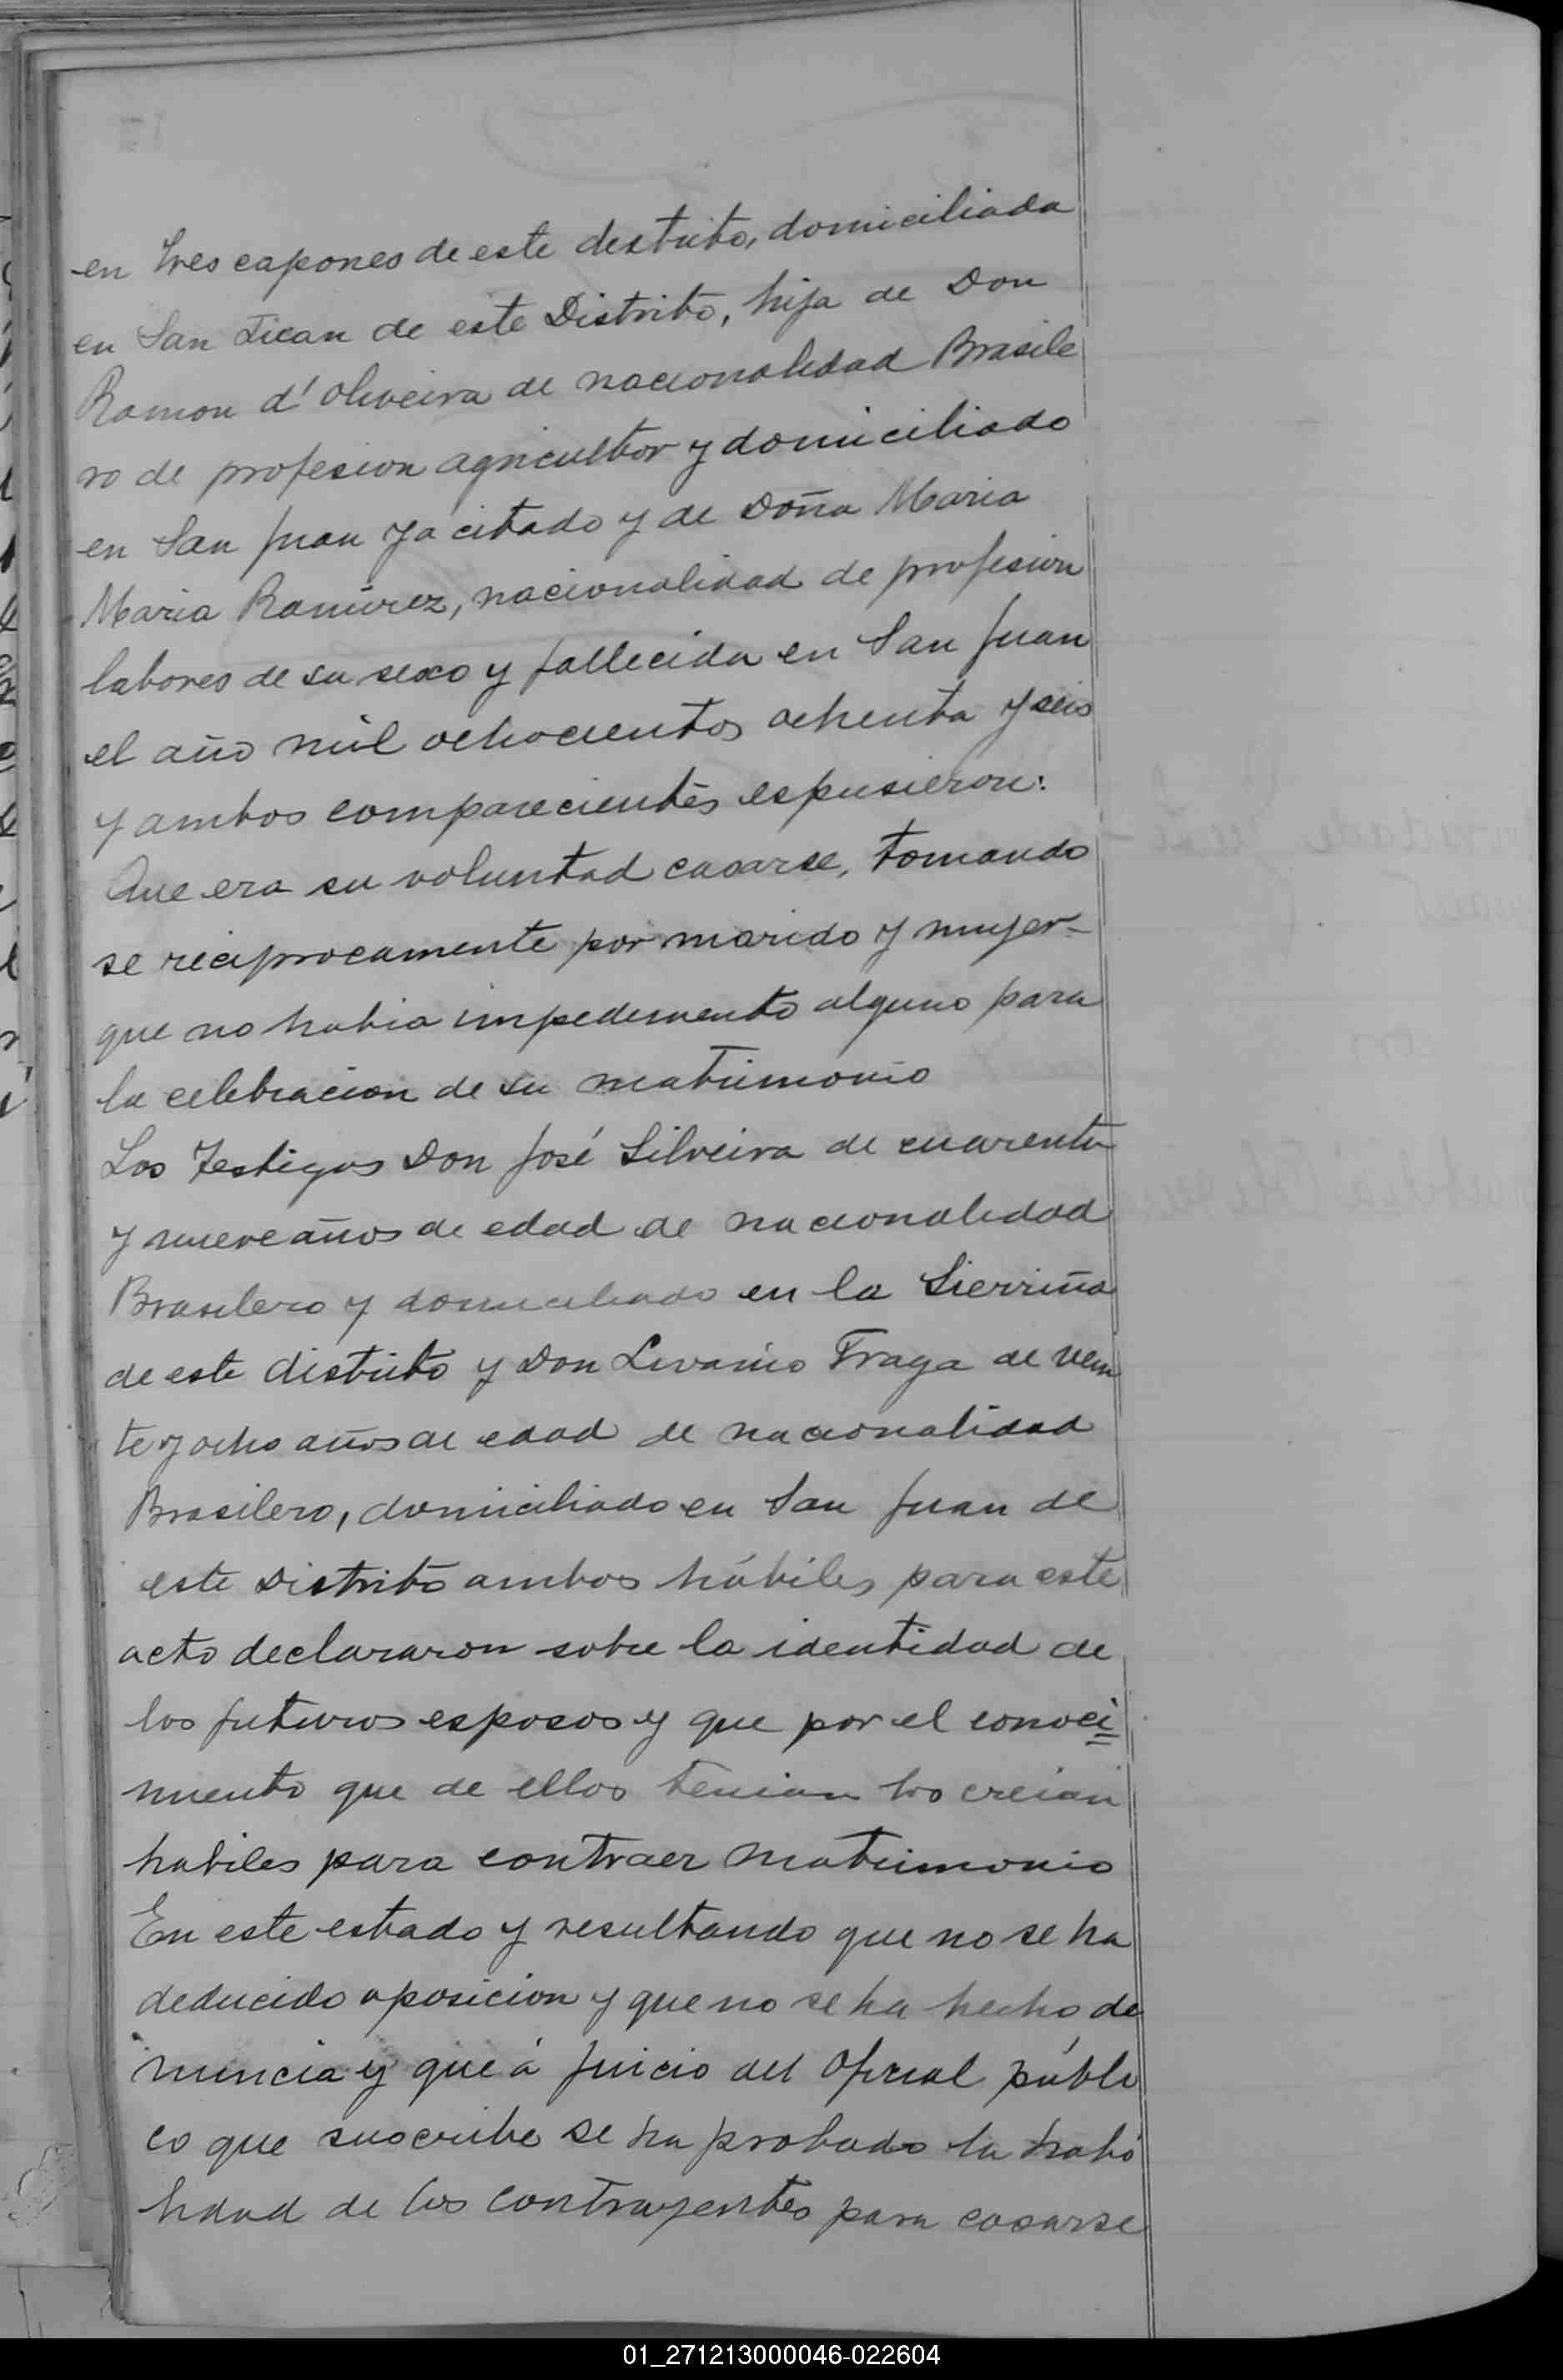 en tres capones de este destrito, domiciliada
en San Juan de este Distrito, hija de Don
Ramon d'Oliveira de nacionalidad Brasile
ro de profesion agricultor y domiciliado
en San Juan ya citado y de Doña Maria
Maria Ramirez, nacionalidad de profesion
labores de su sexo y fallecida en San Juan
el año mil ochocientos ochenta y seis
y ambos comparecientes espusieron:
Que era su voluntad casarse, tomando
se reciprocamente por marido y mujer-
que no habia impedemento alguno para
la celebracion de su matrimonio
Los Testigos Don José Silveira de cuarenta
y nueve años de edad de nacionalidad
Brasilero y domiciliado en la Sierriña
de este distrito y Don Fraga de vein
te y ocho años de edad de nacionalidad
Brasilero, domiciliado en San Juan de
este Distrito ambos hábiles para este
acto declararon sobre la identidad de
los futuros esposos y que por el conoci
miento que de ellos tenian los creian
habiles para contraer matrimonio
En este estado y resultando que no se ha
deducido oposicion y que no se ha hecho de
nuncia y que á juicio del oficial públi
co que suscribe se ha probado la habi
lidad de los contrayentes para casarse
01_271213000046-022604